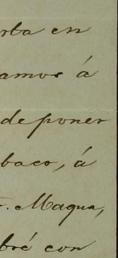 rta en
amos á
de poner
baco, á
r. Maqua,
bré con